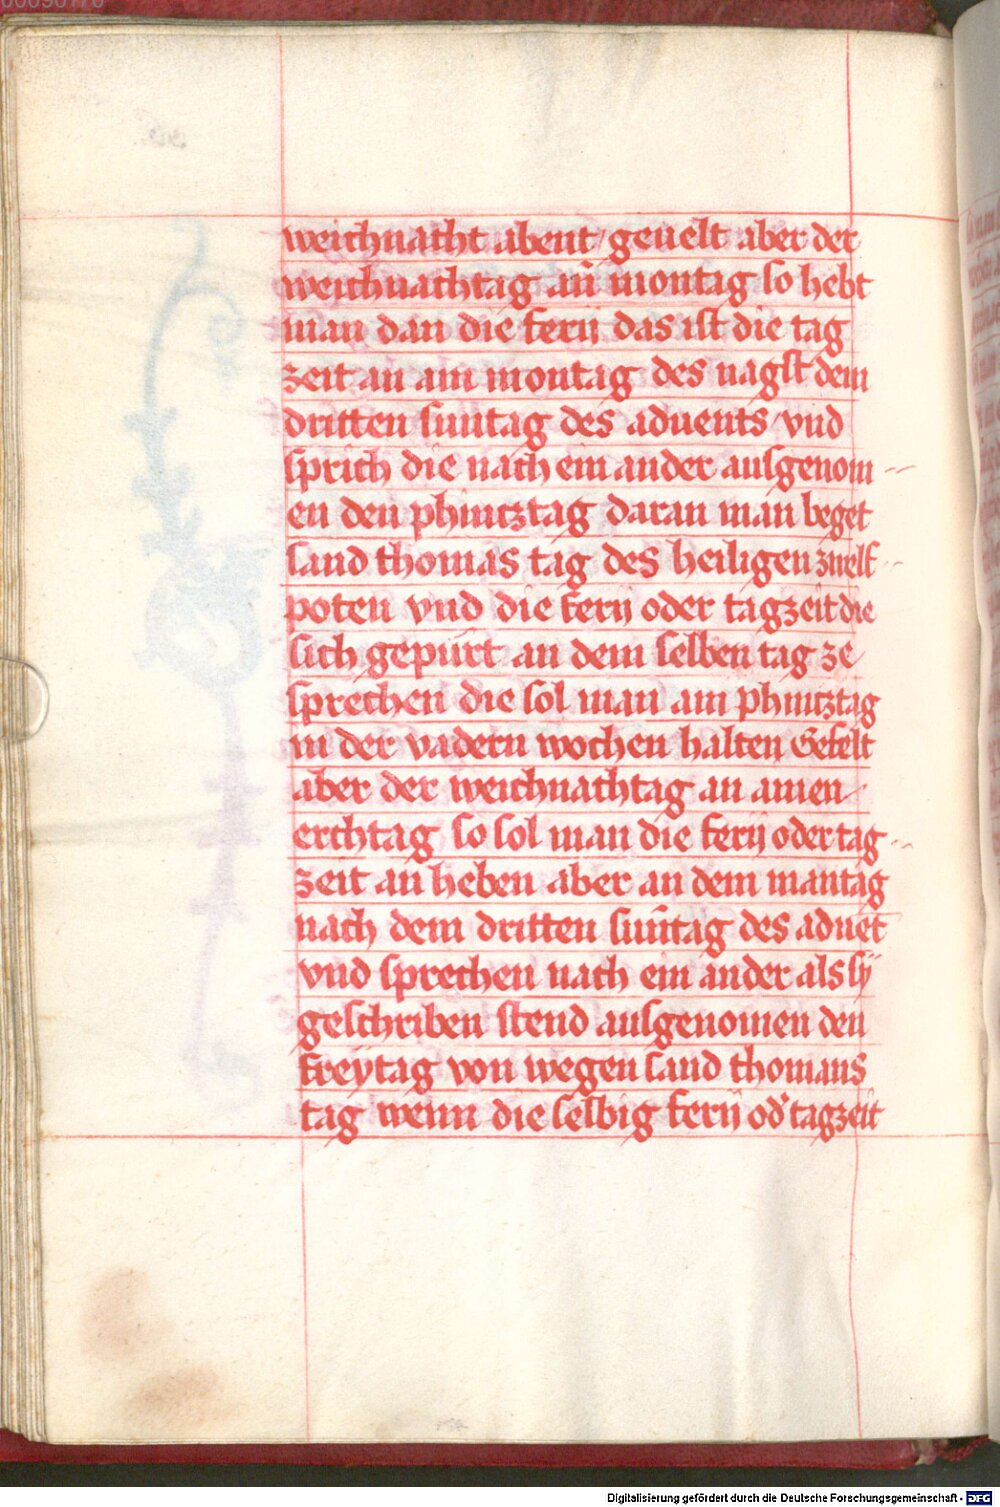 weichnacht abent / geuelt aber der
weichnachtag an̄ montag so hebt
man dan die ferij das ist die tag
zeit an am montag des nagst dem
dritten suntag des aduents / vnd
sprich die nach ein ander ausgenom
en den phincztag daran man beget
sand thomas tag des heiligen zwelf
poten vnd die ferij oder tagzeit die
sich gepürt an dem selben tag ze
sprechen die sol man am phincztag
in der vadern wochen halten Gefelt
aber der weichnachtag an ainen
erchtag so sol man die ferij oder tag
zeit an heben aber an dem mantag
nach dem dritten sun̄tag des aduēt
vnd sprechen nach ein ander als sÿ
geschriben stend ausgenomen den
freÿtag von wegen sand thomans
tag wenn die selbig ferij od' tagzeit
Digitalisierung gefördert durch die Deutsche Forschungsgemeinschaft - DFG